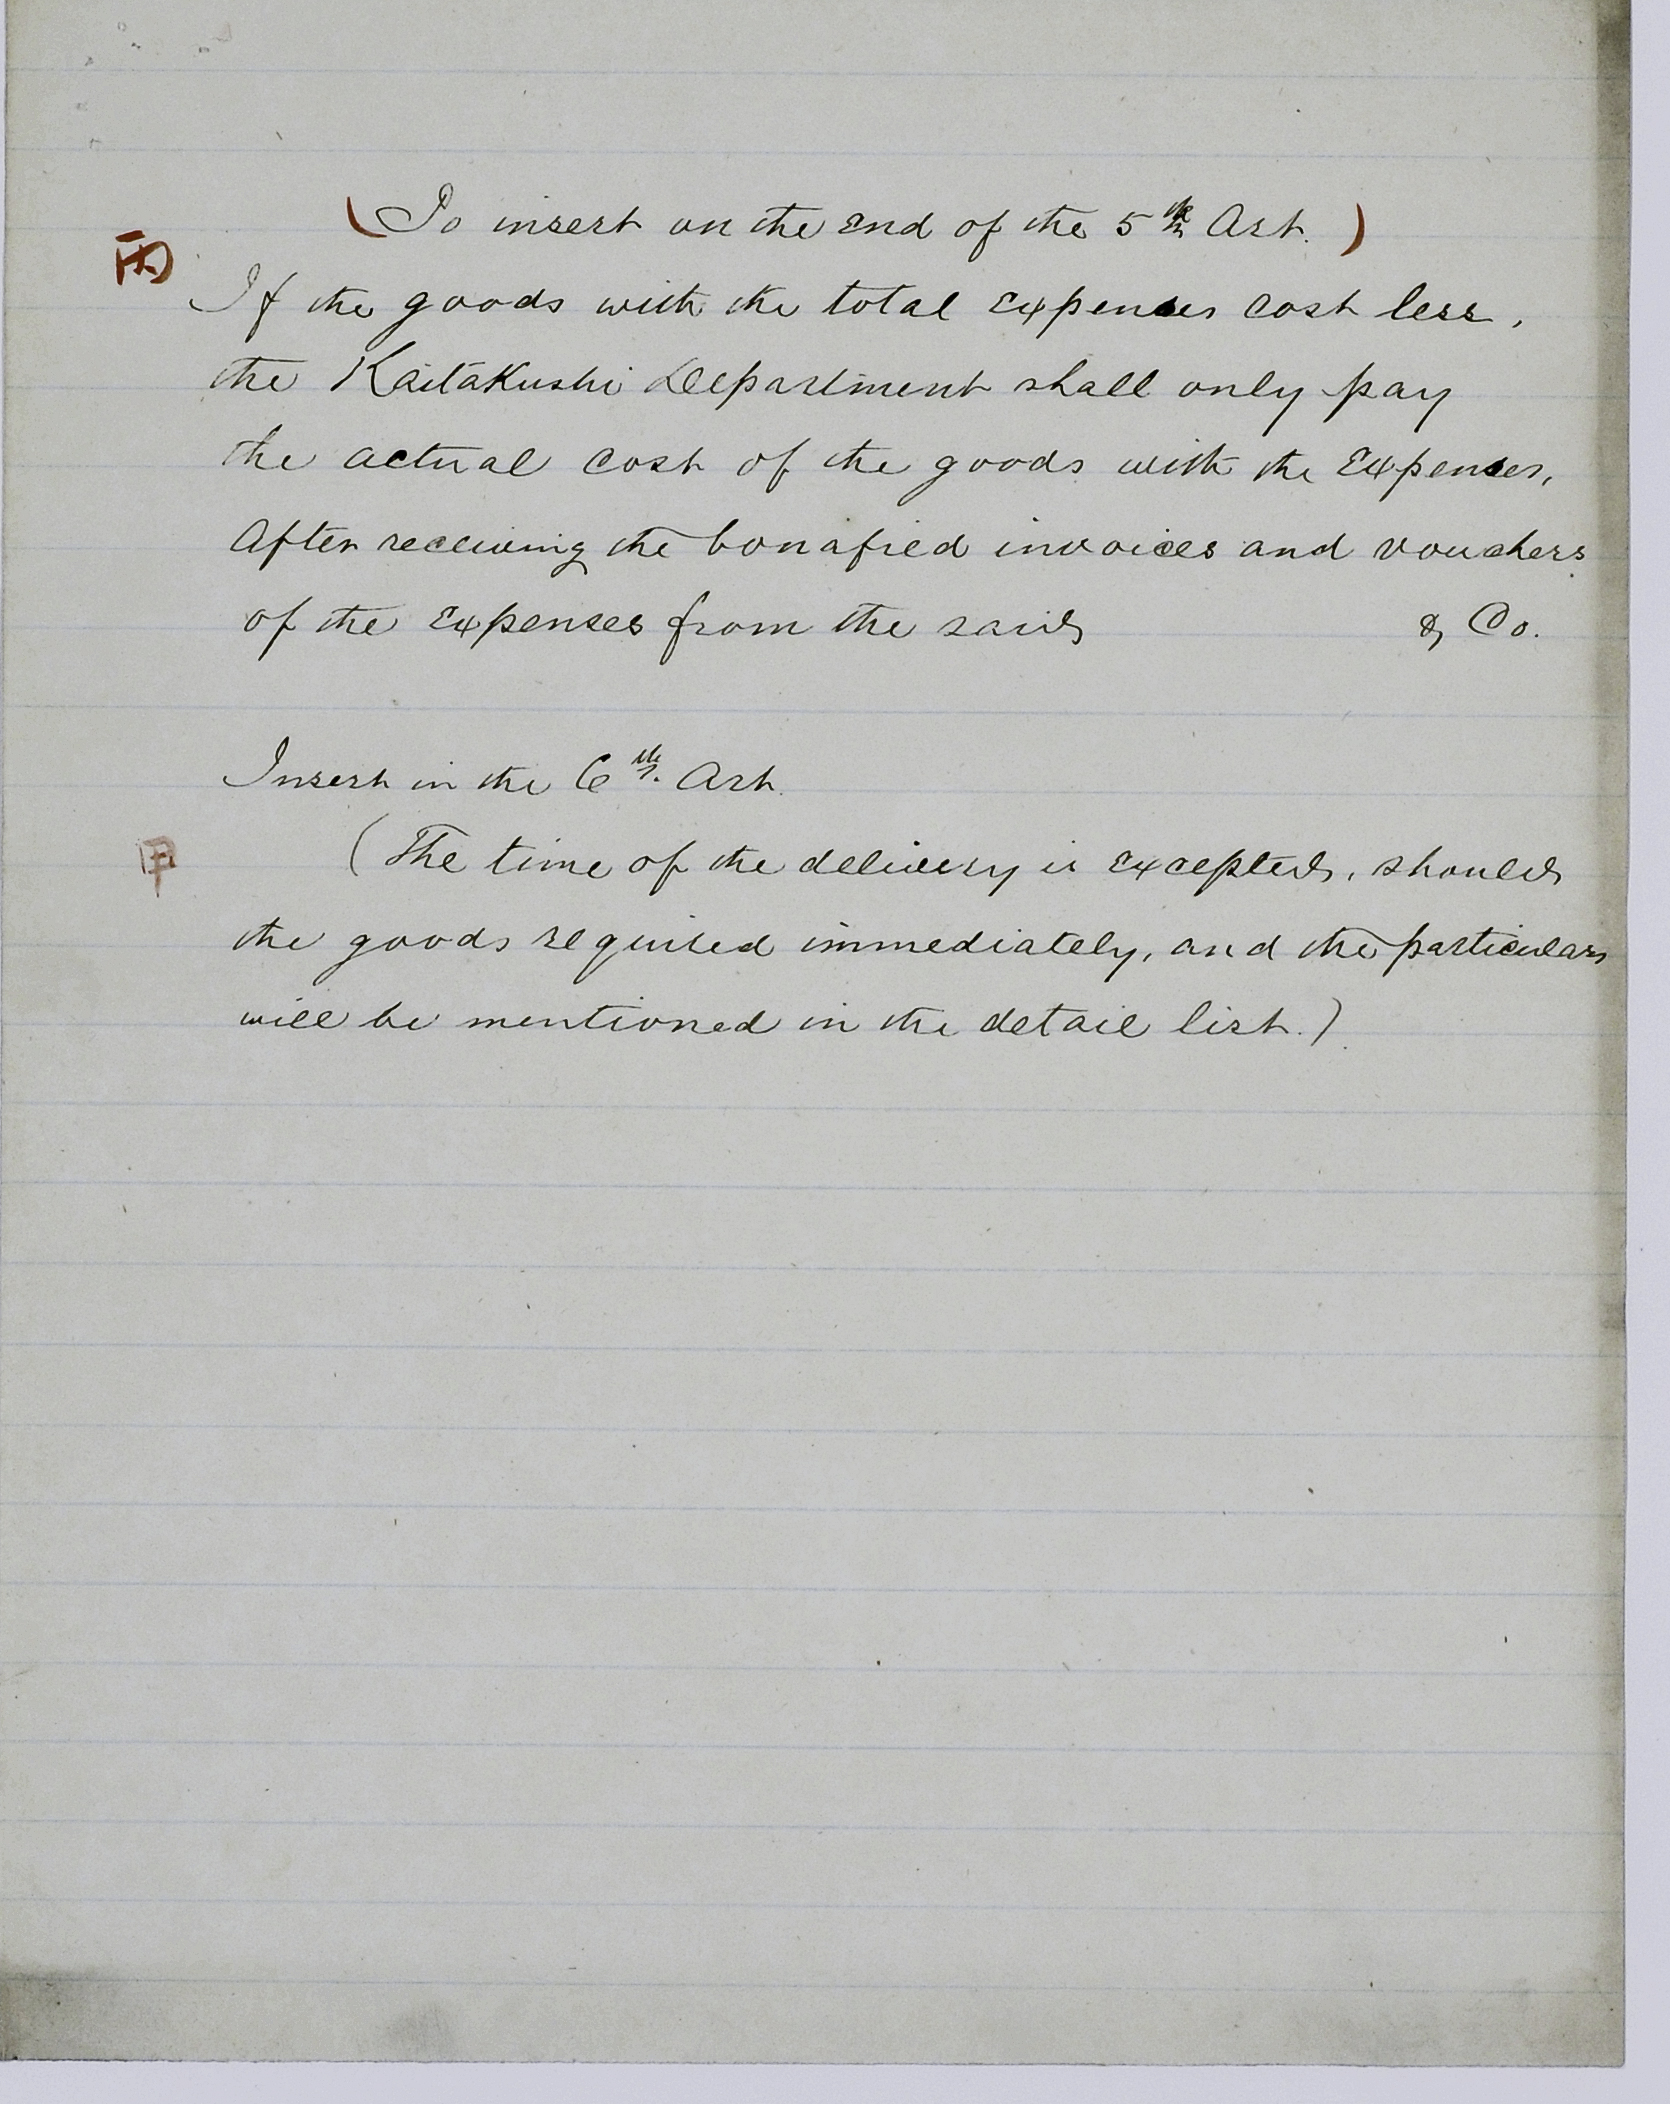 (To insert on the End of the 5th Art.)
丙
If the goods with the total Expenses cost less,
the Kaitakushi Department shall only pay
the actual cost of the goods with the Expenses,
After receiving the bonafied invoices and vouchers
of the Expenses from the said & Co.
Insert in the 6th. Art.
甲
(The time of the delivery is Excepted, should
the goods required immediately, and the particulars
will be mentioned in the detail list.)